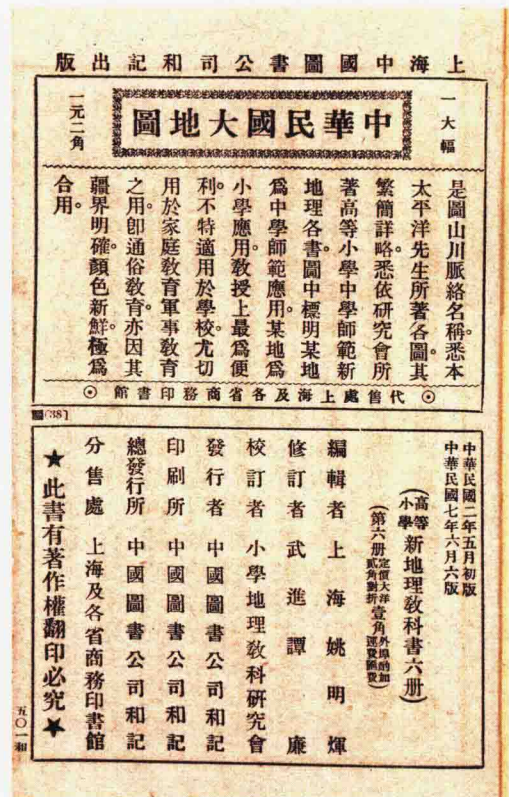 上海中國圖書公司和記出版
一大幅
中華民國大地圖
一元二角
是圖山川脈絡名稱。悉本
太平洋先生所著各圖。其
繁簡詳略。悉依研究會所
著高等小學中學師範新
地理各書。圖中標明某地
爲中學師範應用。某地爲
小學應用。教授上最爲便
利。不特適用於學校。尤切
用於家庭教育軍事教育
之用。卽通俗教育。亦因其
疆界明確。顏色新鮮。極爲
合用。
⊙代售處上海及各省商務印書館⊙
(38)
中華民國二年五月初版
中華民國七年六月六版
(高等小學新地理教科書六册)
(第六册定價大洋貳角對折壹角外埠酌加運費匯費)
編輯者 上海姚明煇
修訂者 武進譚廉
校訂者 小學地理教科研究會
發行者 中國圖書公司和記
印刷所 中國圖書公司和記
總發行所 中國圖書公司和記
分售處 上海及各省商務印書館
★此書有著作權翻印必究★
五〇一和